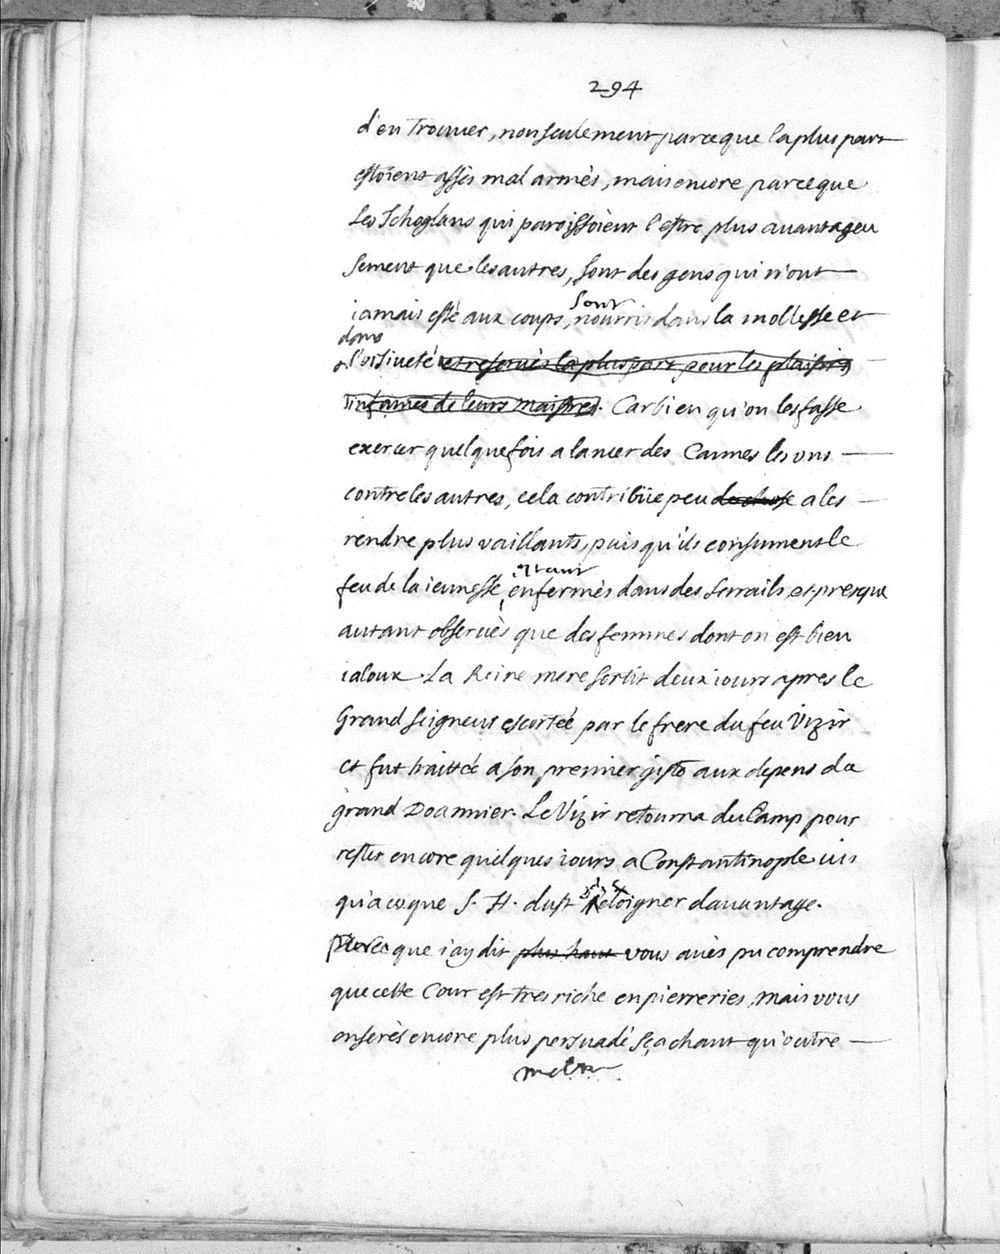 294
d'en trouuer, non seulement parceque la plus part
estoient assés mal armés, mais encore parceque
les Ichoglans qui paroissoient l'estre plus auantageu
sement que les autres, sont des gens qui n'ont
iamais esté aux coups, sont nourris dans la mollesse et
dans l'oisiueté et reserués la plus part pour les plaisirs
infames de leurs maistres. Car bien qu'on les fasse
exercer quelque fois a lancer des Cannes les vns
contre les autres, cela contribüe peu de chose a les
rendre plus vaillants, puis qu'ils consument le
feu de la ieunesse, estant enfermés dans des Serrails et presque
autant obserués que des femmes dont on est bien
ialoux. La Reine mere sortit deux iours apres le
Grand Seigneur escortée par le frere du feu Vizir
et fut traittée a son premier giste aux depens du
grand Doannier. Le Vizir retourna du Camp pour
rester encore quelques iours a Constantinople ius
qu'a ce que S. H. dust s'eloigner dauantage.
que i'ay dit plus haut vous aués pu comprendre
que cette Cour est tres riche en pierreries, mais vous
en serés encore plus persuadé sçachant qu'outre